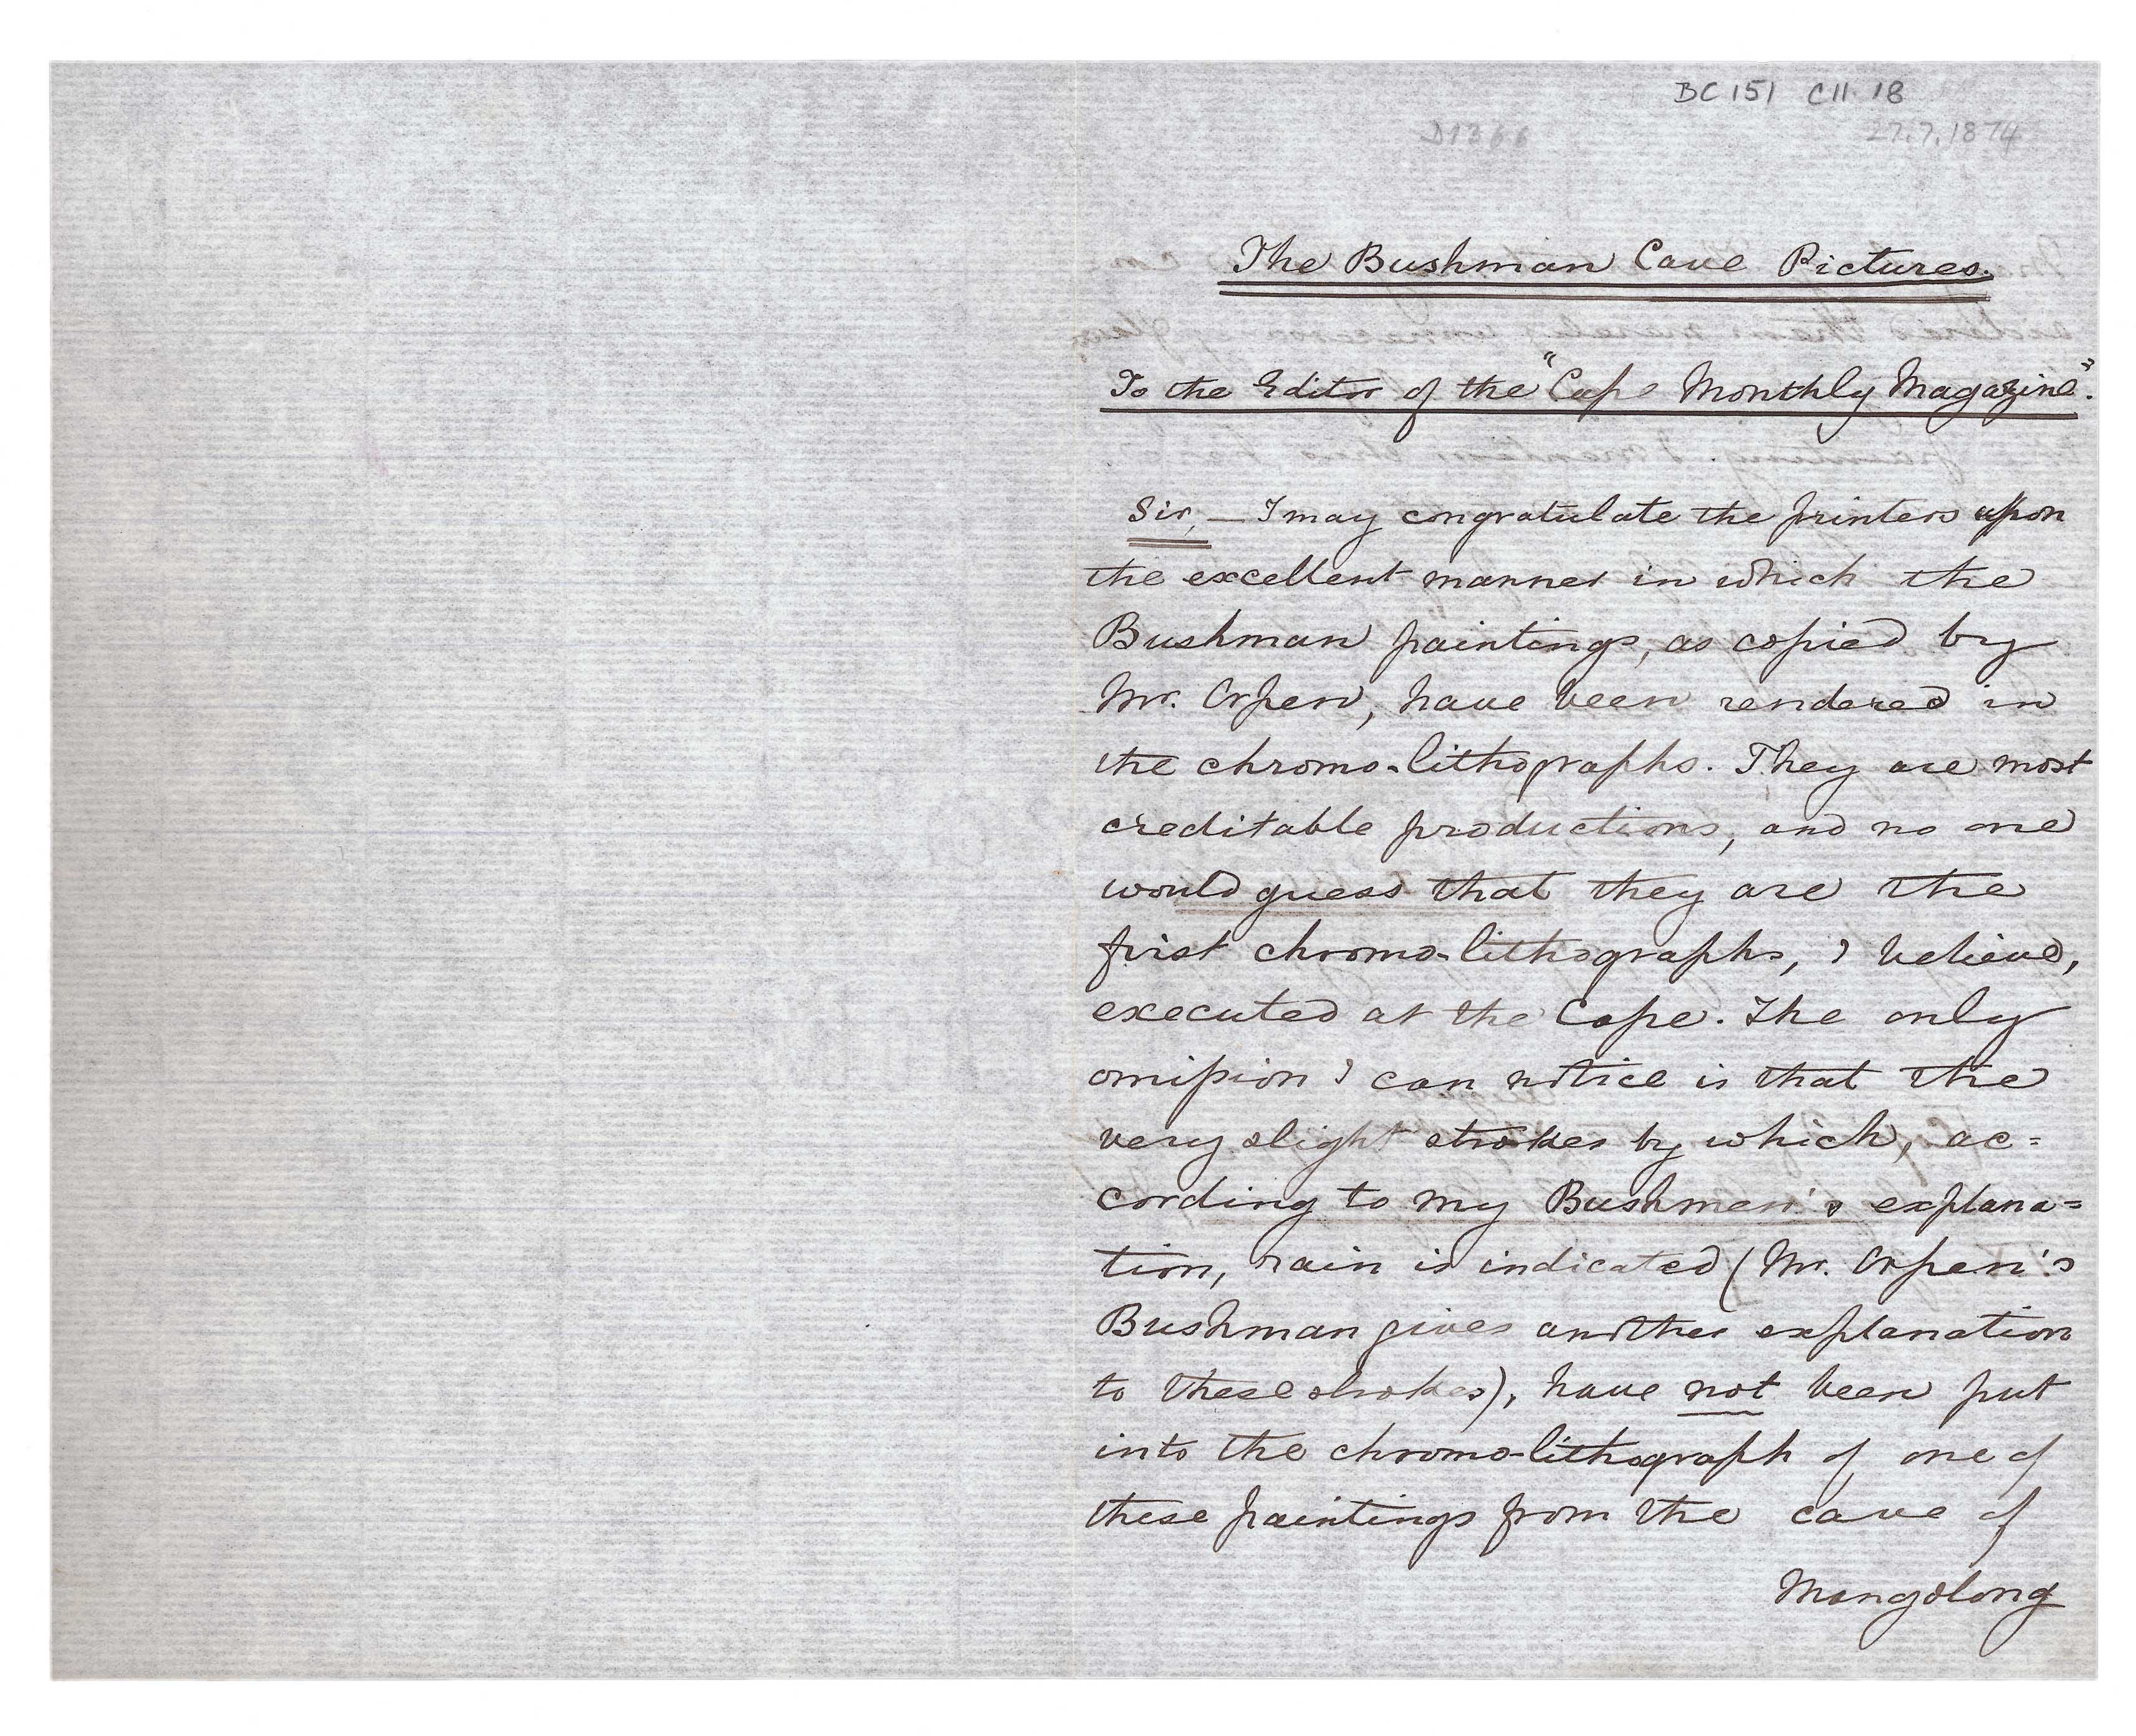 BC 151 C11.18
D1366 27.7.1874
The Bushman Cave Pictures.
To the Editor of the "Cape Monthly Magazine".
Sir, — I may congratulate the printers upon
the excellent manner in which the
Bushman paintings, as copied by
Mr. Orpen, have been rendered in
the chromo-lithographs. They are most
creditable productions, and no one
would guess that they are the
first chromo-lithographs, I believe,
executed at the Cape. The only
omission I can notice is that the
very slight strokes by which, ac=
cording to my Bushman's explana=
tion, rain is indicated (Mr. Orpen's
Bushman gives another explanation
to these strokes), have not been put
into the chromo-lithograph of one of
these paintings from the cave of
Mangolong